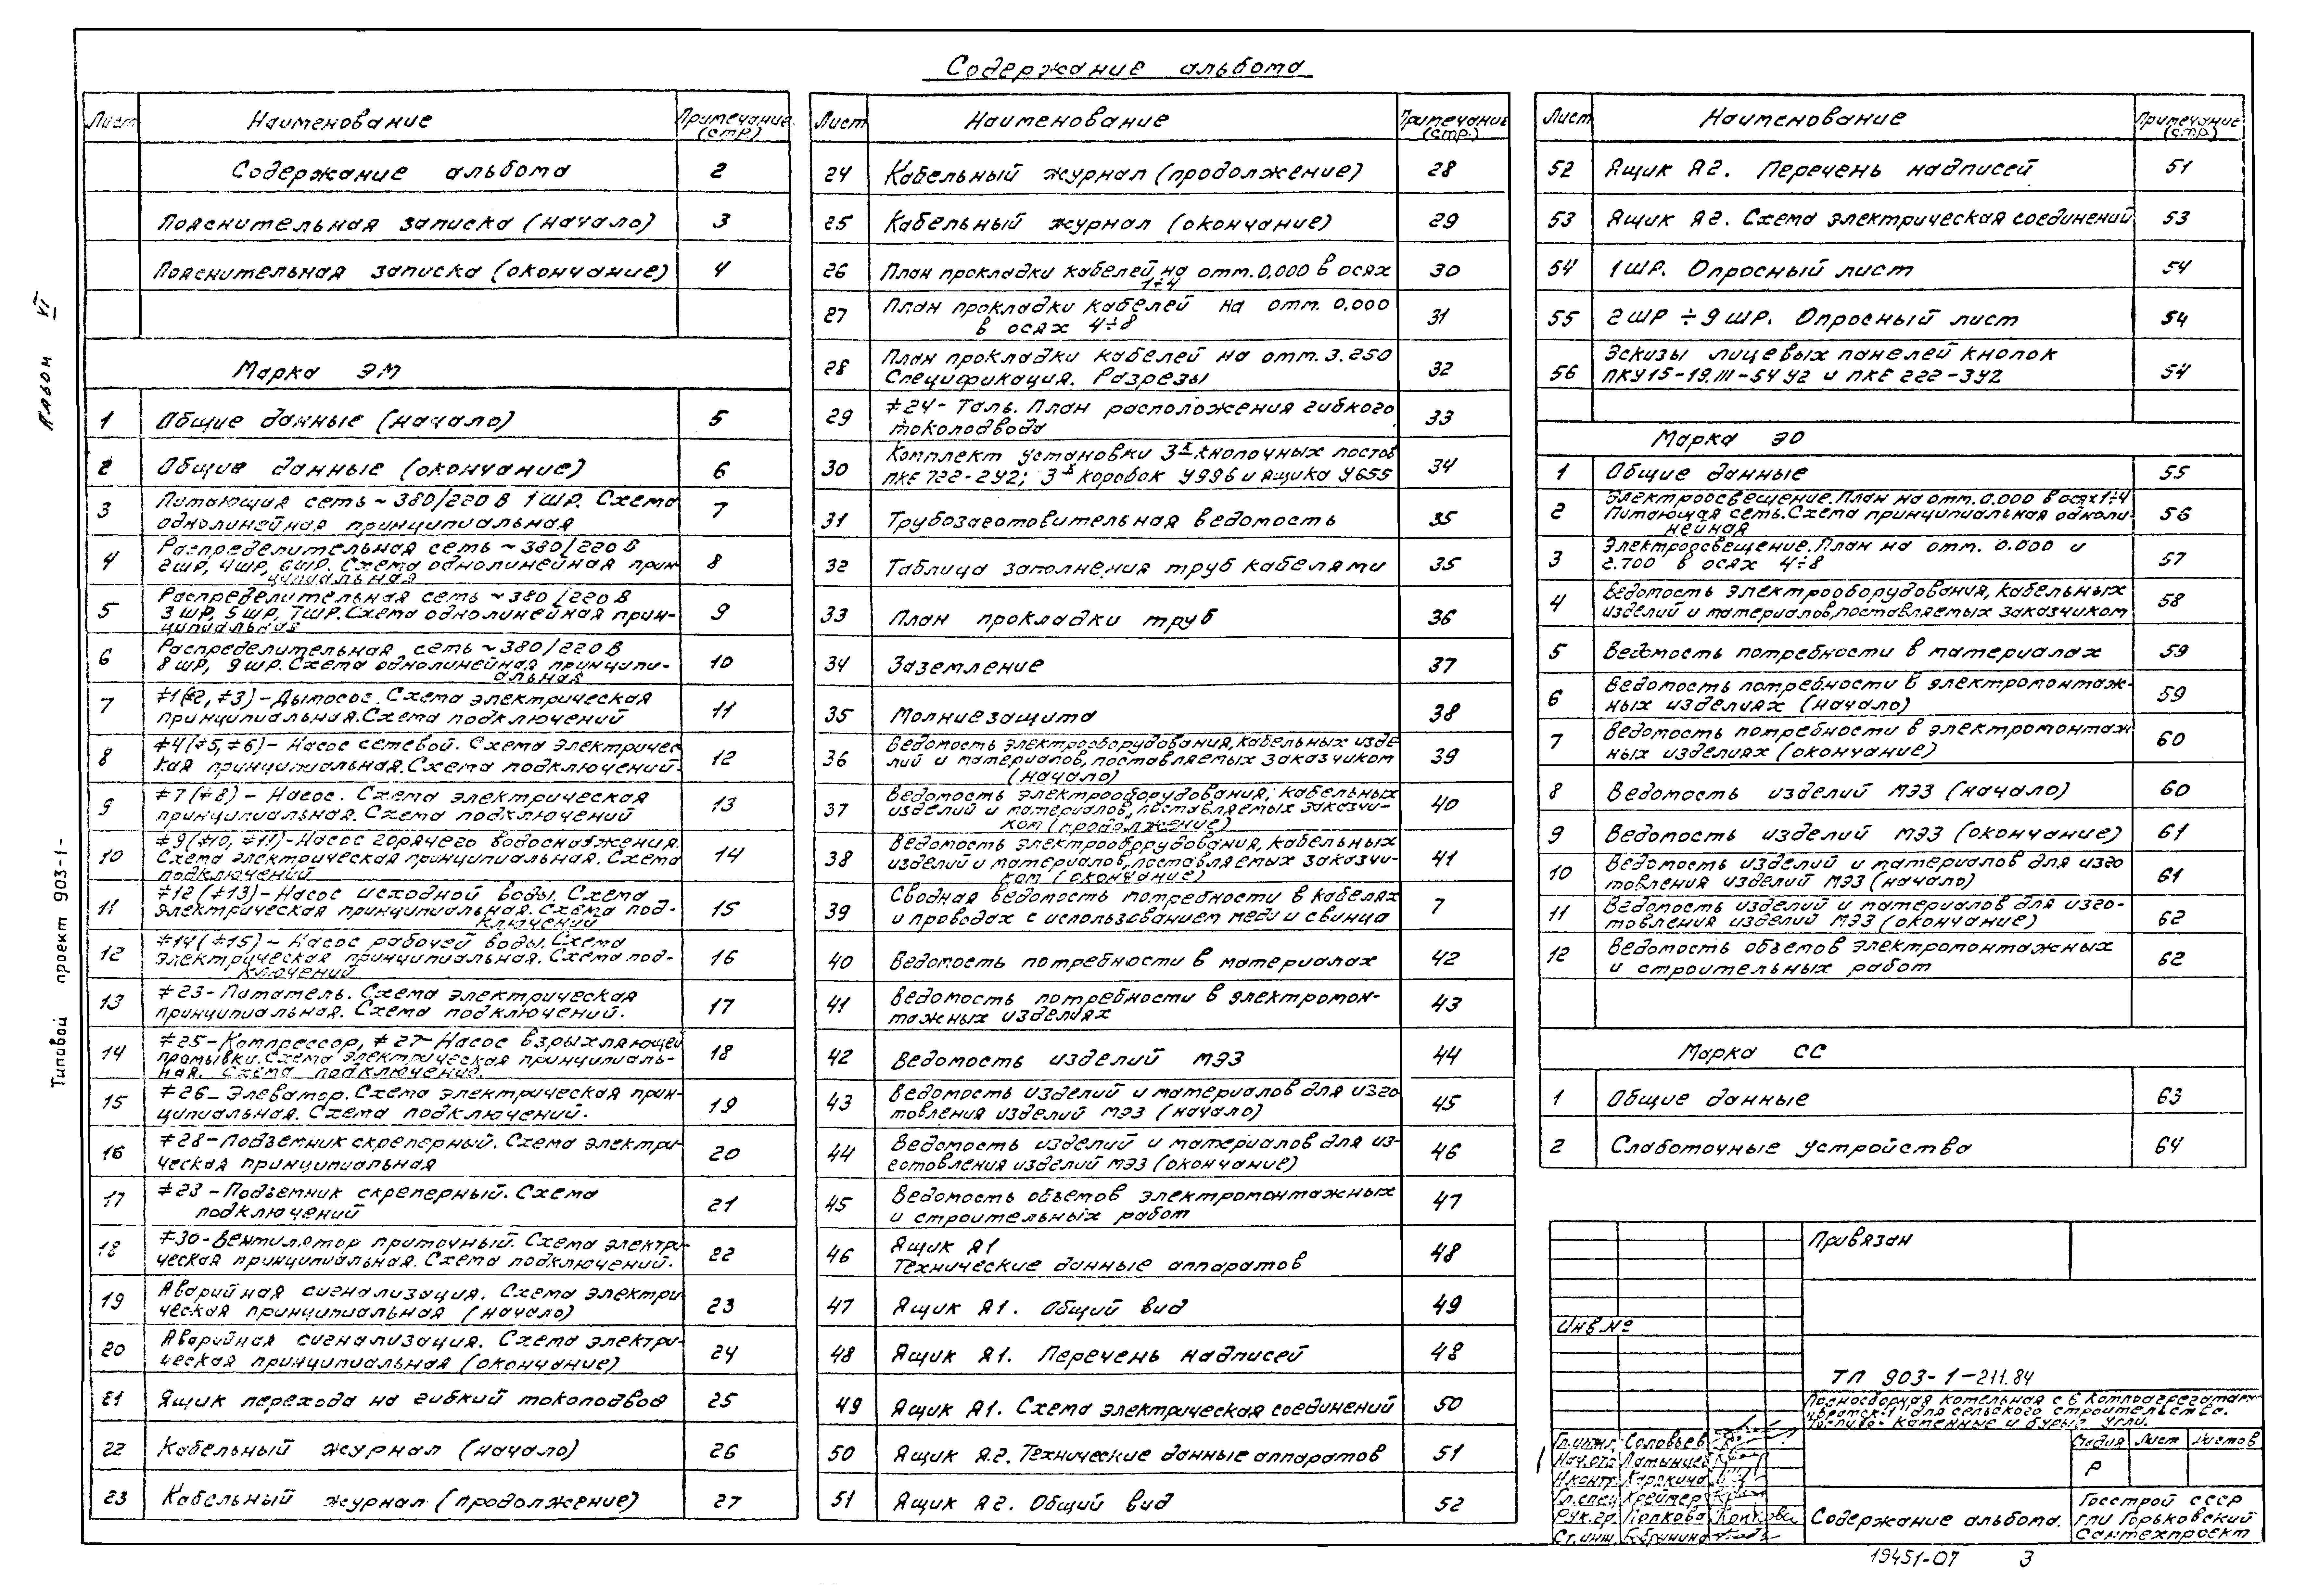 Содержание альбома
Альбом VI
Типовой проект 903-1-
Лист Наименование Примечание (стр)
Содержание альбома 2
Пояснительная записка (начало) 3
Пояснительная записка (окончание) 4
Марка ЭМ
1 Общие данные (начало) 5
2 Общие данные (окончание) 6
3 Питающая сеть ~ 380/220 В 1 ШР. Схема
однолинейная принципиальная 7
4 Распределительная сеть ~ 380/220 В
2ШР, 4ШР, 6ШР. Схема однолинейная прин-
ципиальная 8
5 Распределительная сеть ~ 380/220 В
3 ШР, 5 ШР, 7ШР. Схема однолинейная прин-
ципиальная 9
6 Распределительная сеть ~ 380/220 В
8 ШР, 9 ШР. Схема однолинейная принципи-
альная 10
7 ≠1(≠2, ≠3) – Дымосос. Схема электрическая
принципиальная. Схема подключений 11
8 ≠4(≠5, ≠6) – Насос сетевой. Схема электричес
кая принципиальная. Схема подключений. 12
9 ≠7(≠8) – Насос. Схема электрическая
принципиальная. Схема подключений 13
10 ≠9(≠10, ≠11) – Насос горячего водоснабжения.
Схема электрическая принципиальная. Схема
подключений 14
11 ≠12(≠13) – Насос исходной воды. Схема
электрическая принципиальная. Схема под-
ключений 15
12 ≠14(≠15) – Насос рабочей воды. Схема
электрическая принципиальная. Схема под-
ключений 16
13 ≠23 – Питатель. Схема электрическая
принципиальная. Схема подключений. 17
14 ≠25 – Компрессор, ≠27 – Насос взрыхляющей
промывки. Схема электрическая принципиаль-
ная. Схема подключений. 18
15 ≠26 – Элеватор. Схема электрическая прин-
ципиальная. Схема подключений. 19
16 ≠28 – Подъемник скреперный. Схема электри-
ческая принципиальная 20
17 ≠23 – Подъемник скреперный. Схема
подключений 21
18 ≠30 – Вентилятор приточный. Схема электри-
ческая принципиальная. Схема подключений. 22
19 Аварийная сигнализация. Схема электри
ческая принципиальная (начало) 23
20 Аварийная сигнализация. Схема электри-
ческая принципиальная (окончание) 24
21 Ящик перехода на гибкий токоподвод 25
22 Кабельный журнал (начало) 26
23 Кабельный журнал (продолжение) 27
Лист Наименование Примечание (стр.)
24 Кабельный журнал (продолжение) 28
25 Кабельный журнал (окончание) 29
26 План прокладки кабелей на отм. 0,000 в осях
1÷4 30
27 План прокладки кабелей на отм. 0.000
в осях 4÷8 31
28 План прокладки кабелей на отм. 3.250
Спецификация. Разрезы 32
29 ≠24 – Таль. План расположения гибкого
токоподвода 33
30 Комплект установки 3х кнопочных постов
ПКЕ 722-2У2; 3х коробок У996 и ящика У655 34
31 Трубозаготовительная ведомость 35
32 Таблица заполнения труб кабелями 35
33 План прокладки труб 36
34 Заземление 37
35 Молниезащита 38
36 Ведомость электрооборудования, кабельных изде
лий и материалов, поставляемых заказчиком
(начало) 39
37 Ведомость электрооборудования, кабельных
изделий и материалов, поставляемых заказчи-
ком (продолжение) 40
38 Ведомость электрооборудования, кабельных
изделий и материалов, поставляемых заказчи-
ком (окончание) 41
39 Сводная ведомость потребности в кабелях
и проводах с использованием меди и свинца 7
40 Ведомость потребности в материалах 42
41 Ведомость потребности в электромон-
тажных изделиях 43
42 Ведомость изделий МЭЗ 44
43 Ведомость изделий и материалов для изго
товления изделий МЭЗ (начало) 45
44 Ведомость изделий и материалов для из-
готовления изделий МЭЗ (окончание) 46
45 Ведомость объемов электромонтажных
и строительных работ 47
46 Ящик Я1
Технические данные аппаратов 48
47 Ящик Я1. Общий вид 49
48 Ящик Я1. Перечень надписей 48
49 Ящик Я1. Схема электрическая соединений 50
50 Ящик Я2. Технические данные аппаратов 51
51 Ящик Я2. Общий вид 52
Лист Наименование Примечание (стр.)
52 Ящик Я2. Перечень надписей 51
53 Ящик Я2. Схема электрическая соединений 53
54 1 ШР. Опросный лист 54
55 2 ШР ÷ 9 ШР. Опросный лист 54
56 Эскизы лицевых панелей кнопок
ПКУ15-19.III-54 У2 и ПКЕ 222-3У2 54
Марка ЭО
1 Общие данные 55
2 Электроосвещение. План на отм. 0.000 в осях 1÷4
Питающая сеть. Схема принципиальная одноли-
нейная 56
3 Электроосвещение. План на отм. 0.000 и
2.700 в осях 4÷8 57
4 Ведомость электрооборудования, кабельных
изделий и материалов, поставляемых заказчиком 58
5 Ведомость потребности в материалах 59
6 Ведомость потребности в электромонтаж-
ных изделиях (начало) 59
7 Ведомость потребности в электромонтаж
ных изделиях (окончание) 60
8 Ведомость изделий МЭЗ (начало) 60
9 Ведомость изделий МЭЗ (окончание) 61
10 Ведомость изделий и материалов для изго
товления изделий МЭЗ (начало) 61
11 Ведомость изделий и материалов для изго-
товления изделий МЭЗ (окончание) 62
12 Ведомость объемов электромонтажных
и строительных работ 62
Марка СС
1 Общие данные 63
2 Слаботочные устройства 64
Привязан
Инв.№
ТП 903-1-211.84
Полносборная котельная с 6 котлоагрегатами
"Братск-1" для сельского строительства.
Топливо – каменные и бурые угли.
Гл.инж. Соловьев
Нач.отд Латынцев
Н.контр. Карякина
Гл.спец Креймер
Рук.гр. Копкова
Ст.инж.
Стадия Лист Листов
Р
Содержание альбома.
Госстрой СССР
ГПИ Горьковский
Сантехпроект
19451-07 3